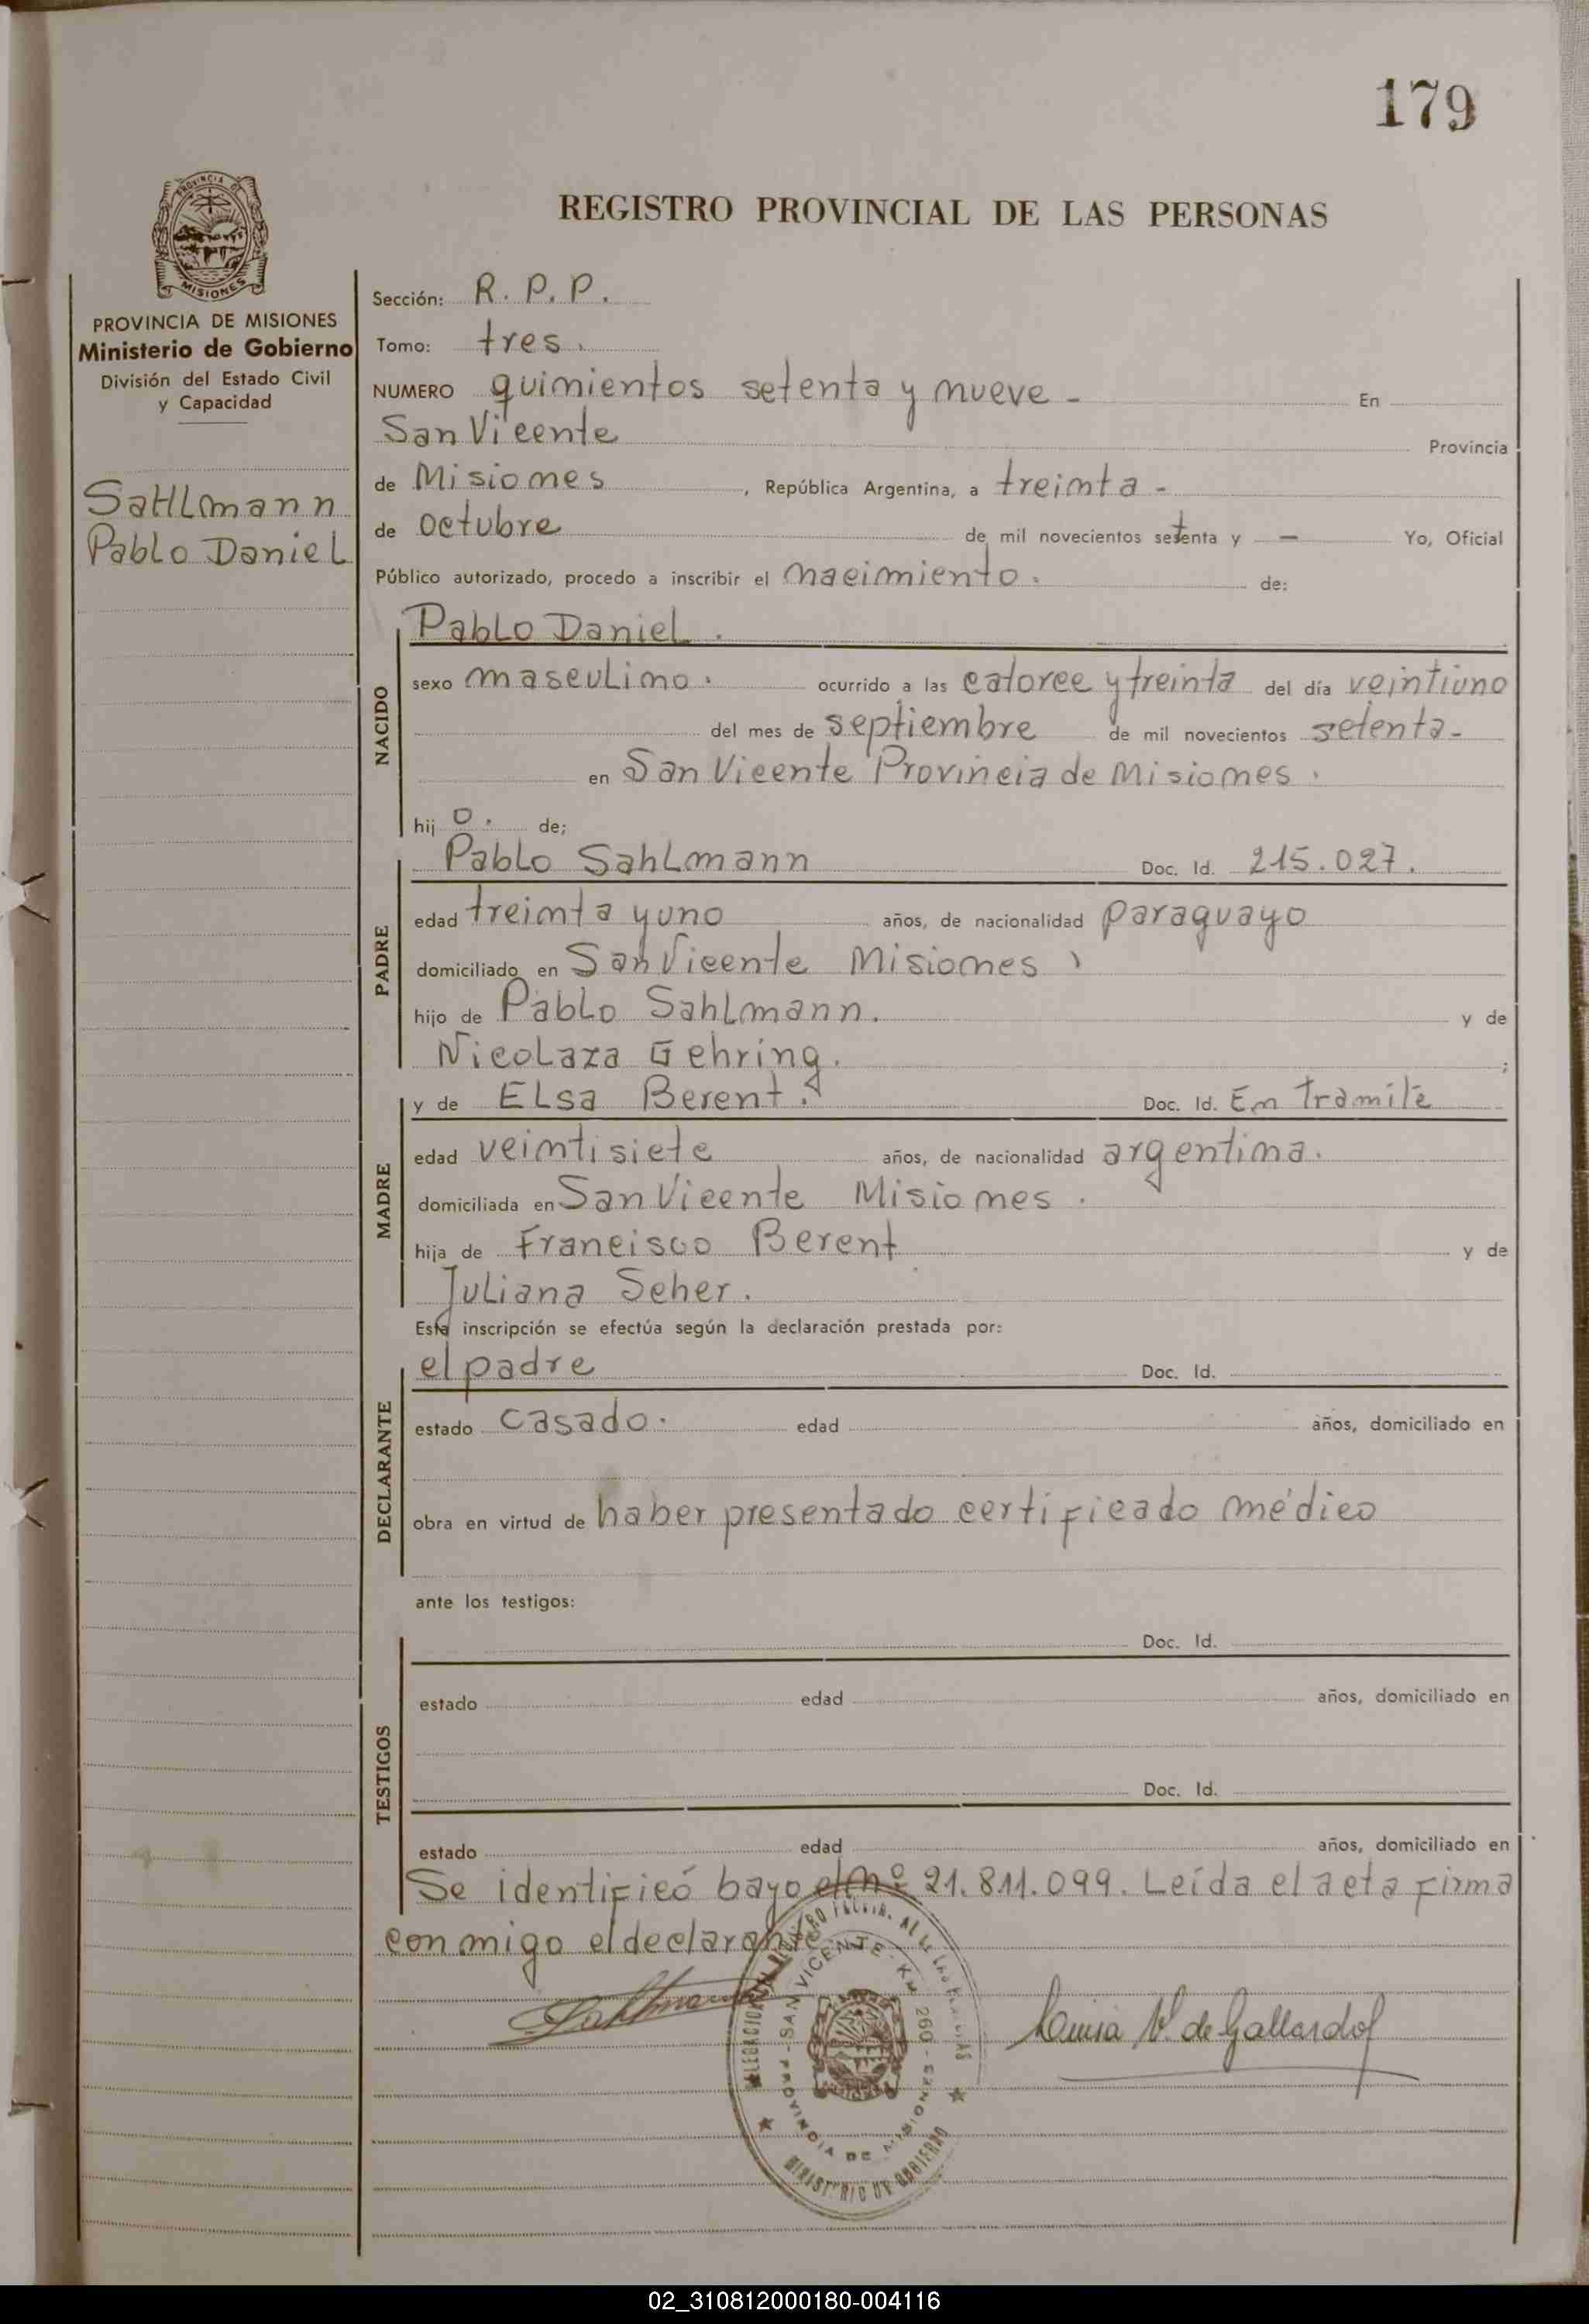 179
PROVINCIA DE
MISIONES
PROVINCIA DE MISIONES
Ministerio de Gobierno
División del Estado Civil
y Capacidad
SaHLmann
Pablo Daniel
REGISTRO PROVINCIAL DE LAS PERSONAS
Sección: R. P. P.
Tomo: tres.
NUMERO quinientos setenta y nueve - En
San Vicente Provincia
de Misiones , República Argentina, a treinta -
de octubre de mil novecientos setenta y — Yo, Oficial
Público autorizado, procedo a inscribir el nacimiento. de:
NACIDO
Pablo Daniel.
sexo masculino. ocurrido a las catorce y treinta del día veintiuno
del mes de septiembre de mil novecientos setenta-
en San Vicente Provincia de Misiones.
hij o. de;
PADRE
Pablo Sahlmann Doc. Id. 215.027.
edad treinta y uno años, de nacionalidad paraguayo
domiciliado en San Vicente Misiones
hijo de Pablo Sahlmann. y de
Nicolaza Gehring. ;
MADRE
y de Elsa Berent. Doc. Id. En Tramite
edad veintisiete años, de nacionalidad argentina.
domiciliada en San Vicente Misiones.
hija de Francisco Berent y de
Juliana Scher.
Esta inscripción se efectúa según la declaración prestada por:
DECLARANTE
el padre Doc. Id.
estado casado. edad años, domiciliado en
obra en virtud de haber presentado certificado médico
ante los testigos:
TESTIGOS
Doc. Id.
estado edad años, domiciliado en
Doc. Id.
estado edad años, domiciliado en
Se identificó bayo el Nº 21.811.099. Leída el acta firma
conmigo el declarante.
Sahlmann
SAN VICENTE - KM 260 - PROVINCIA DE MISIONES
MINISTERIO DE GOBIERNO
V. de Gallardo
02_310812000180-004116